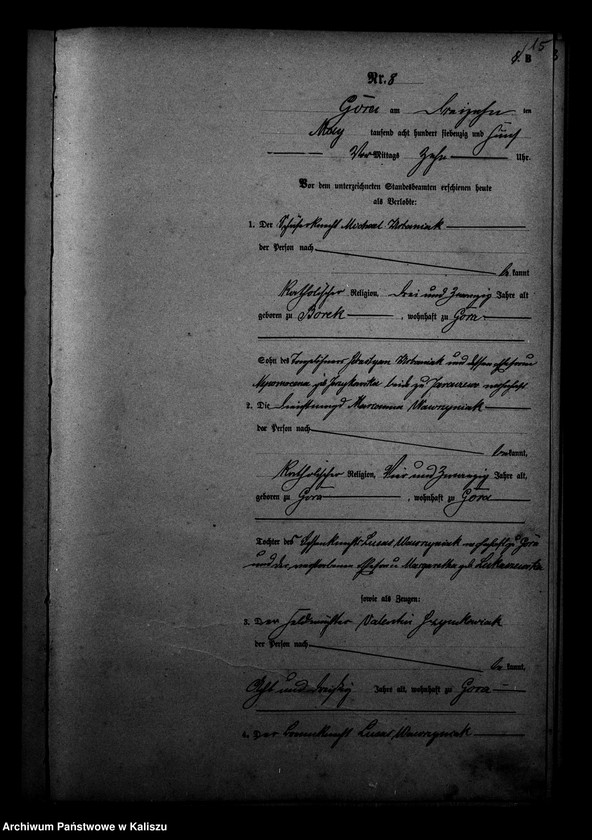 15
8. B
Nr. 8
Gora am dreizehn ten
May tausend acht hundert siebenzig und fünf
Vor Mittags Zehn Uhr.
Vor dem unterzeichneten Standesbeamten erschienen heute
als Verlobte:
1. Der Michael Urbaniak
der Person nach
be kannt
Katholischer Religion, drei und Zwanzig Jahre alt
geboren zu Borek, wohnhaft zu Gora
Sohn des Urbaniak und dessen Ehefrau
beide zu wohnhaft
2. Die Marianna Wawrzyniak
der Person nach
be kannt,
Katholischer Religion, Vier und Zwanzig Jahre alt,
geboren zu Gora, wohnhaft zu Gora
Tochter des Lucas Wawrzyniak wohnhaft zu Gora
und der verstorbenen Ehefrau Margaretha geb
sowie als Zeugen:
3. Der Valentin
der Person nach
be kannt,
Acht und dreißig Jahre alt, wohnhaft zu Gora
4. Der Lucas Wawrzyniak
Archiwum Państwowe w Kaliszu